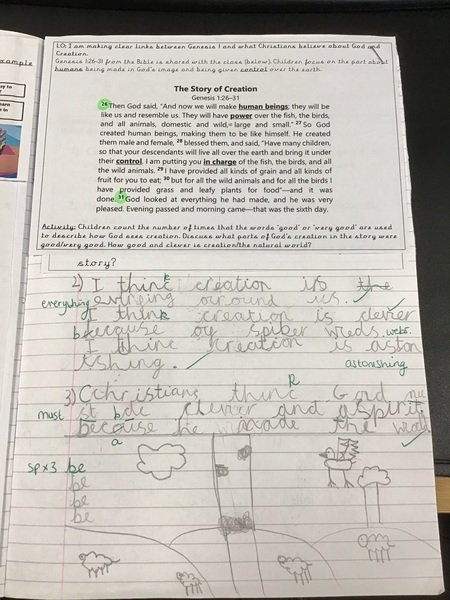 example
L.O: I am making clear links between Genesis 1 and what Christians believe about God and
Creation.
Genesis 1:26-31 from the Bible is shared with the class (below). Children focus on the part about
humans being made in God's image and being given control over the earth.
The Story of Creation
Genesis 1:26–31
26 Then God said, "And now we will make human beings; they will be
like us and resemble us. They will have power over the fish, the birds,
and all animals, domestic and wild, large and small." 27 So God
created human beings, making them to be like himself. He created
them male and female, 28 blessed them, and said, "Have many children,
so that your descendants will live all over the earth and bring it under
their control. I am putting you in charge of the fish, the birds, and all
the wild animals. 29 I have provided all kinds of grain and all kinds of
fruit for you to eat; 30 but for all the wild animals and for all the birds I
have provided grass and leafy plants for food"—and it was
done. 31 God looked at everything he had made, and he was very
pleased. Evening passed and morning came—that was the sixth day.
Activity: Children count the number of times that the words 'good' or 'very good' are used
to describe how God sees creation. Discuss what parts of God's creation in the story were
good/very good. How good and clever is creation/the natural world?
story?
2) I think creation is the
everything evrything around us.
I think creation is clevier
because of spiber webs. webs.
I think creation is aston
ishing.
astonishing
3) Christians think God mu
must st be clevier and aspirit
because he made the
a
sp x3 be
be
be
be